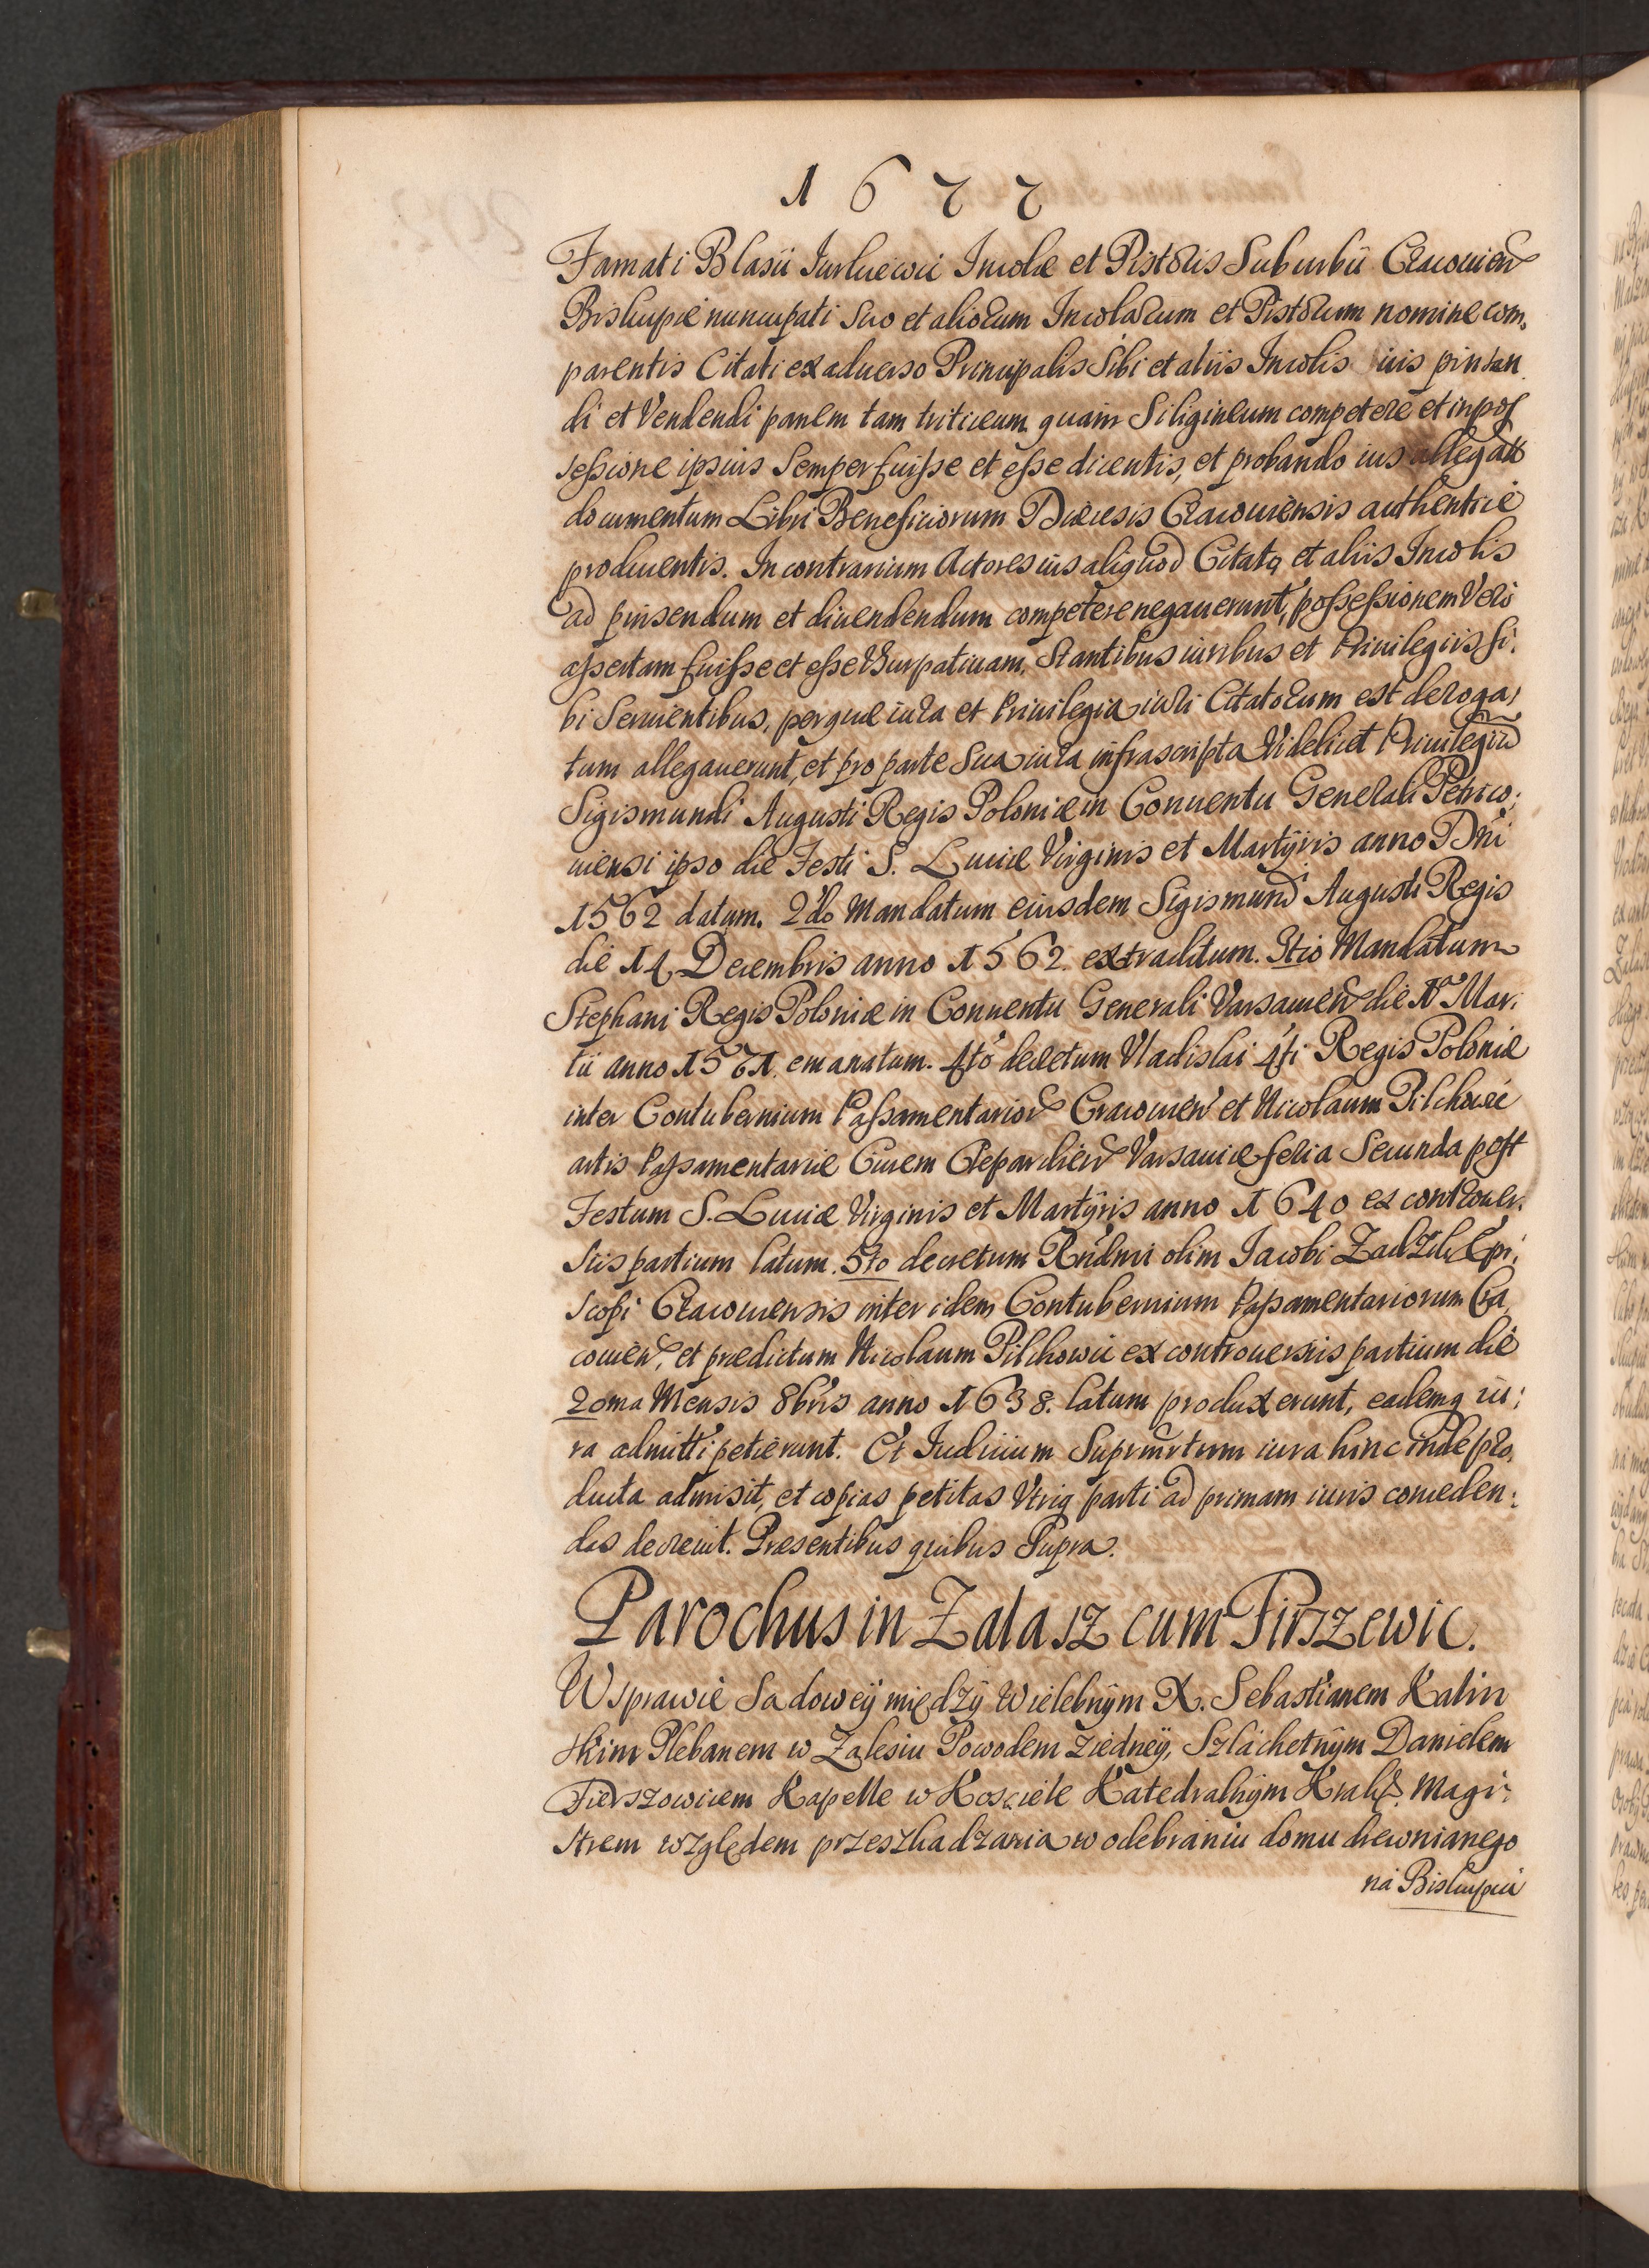 1677
Famati Blasii Iurkiewic Incolæ et Pistoris Suburbii Cracouien
Biskupie nuncupati suo et aliorum Incolarum et Pistorum nomine com,
parentis Citati ex aduerso Principalis Sibi et aliis Incolis iuis pinsen
di et Vendendi panem tam triticeum quam Siligineum competere et in pos
sessione ipsius Semper fuisse et esse dicentis, et probando ius allegatt
documentum Libri Beneficiorum Diæcesis Cracouiensis authentice
producentis. In contrarium Actores ius aliquod Citatq et aliis Incolis
ad pinsendum et diuendendum competere negauerunt, possessionem Vero
assertam fuisse et esse Vsurpatiuam, Stantibus iuribus et Priuilegiis si:
bi Seruientibus, per quæ iura et Priuilegia iuri Citatorum est deroga,
tum allegauerunt, et pro parte Sua iura infrascripta Videlicet Priuilegiū
Sigismundi Augusti Regis Poloniæ in Conuentu Generali Petrico:
uiensi ipso die Festi S. Luciæ Virginis et Martÿris anno Dñi
1562 datum. 2do Mandatum eiusdem Sigismundi Augusti Regis
die 14 Decembris anno 1562. extraditum. 3tio Mandatum
Stephani Regis Poloniæ in Conuentu Generali Varsauien die 1a Mar:
tii anno 1571. emanatum. 4to decretum Vladislai 4ti Regis Poloniæ
inter Contubernium Passamentarior Cracouien et Nicolaum Pilchowic
artis Passamentariæ Ciuem Clepardien Varsauiæ feria Secunda post
Festum S. Luciæ Virginis et Martÿris anno 1640 ex controuer:
siis partium latum. 5to decretum Rñdmi olim Iacobi Zadzik Epi:
scopi Cracouiensis inter idem Contubernium Passamentariorum Cra
couien, et prædictum Nicolaum Pilchowic ex controuersiis partium die
20ma Mensis 8bris anno 1638. latum produxerunt, eademq iu:
ra admitti petierunt. Et Iudicium Suprmrtum iura hinc inde pro,
ducta admisit, et copias petitas Vtriq parti ad primam iuris conceden:
das decreuit. Præsentibus quibus Supra.
Parochus in Zalasz cum Firszewic.
W sprawie Sądoweÿ międzÿ Wielebnÿm X. Sebastianem Kalin
skim Plebanem w Zalesiu Powodem ziedneÿ, Szlachetnÿm Danielem
Fierszowicem Kapelle w Kosciele Katedralnÿm Krak. Magi:
strem względem przeszkadzania w odebraniu domu drewnianego
na Biskupiu